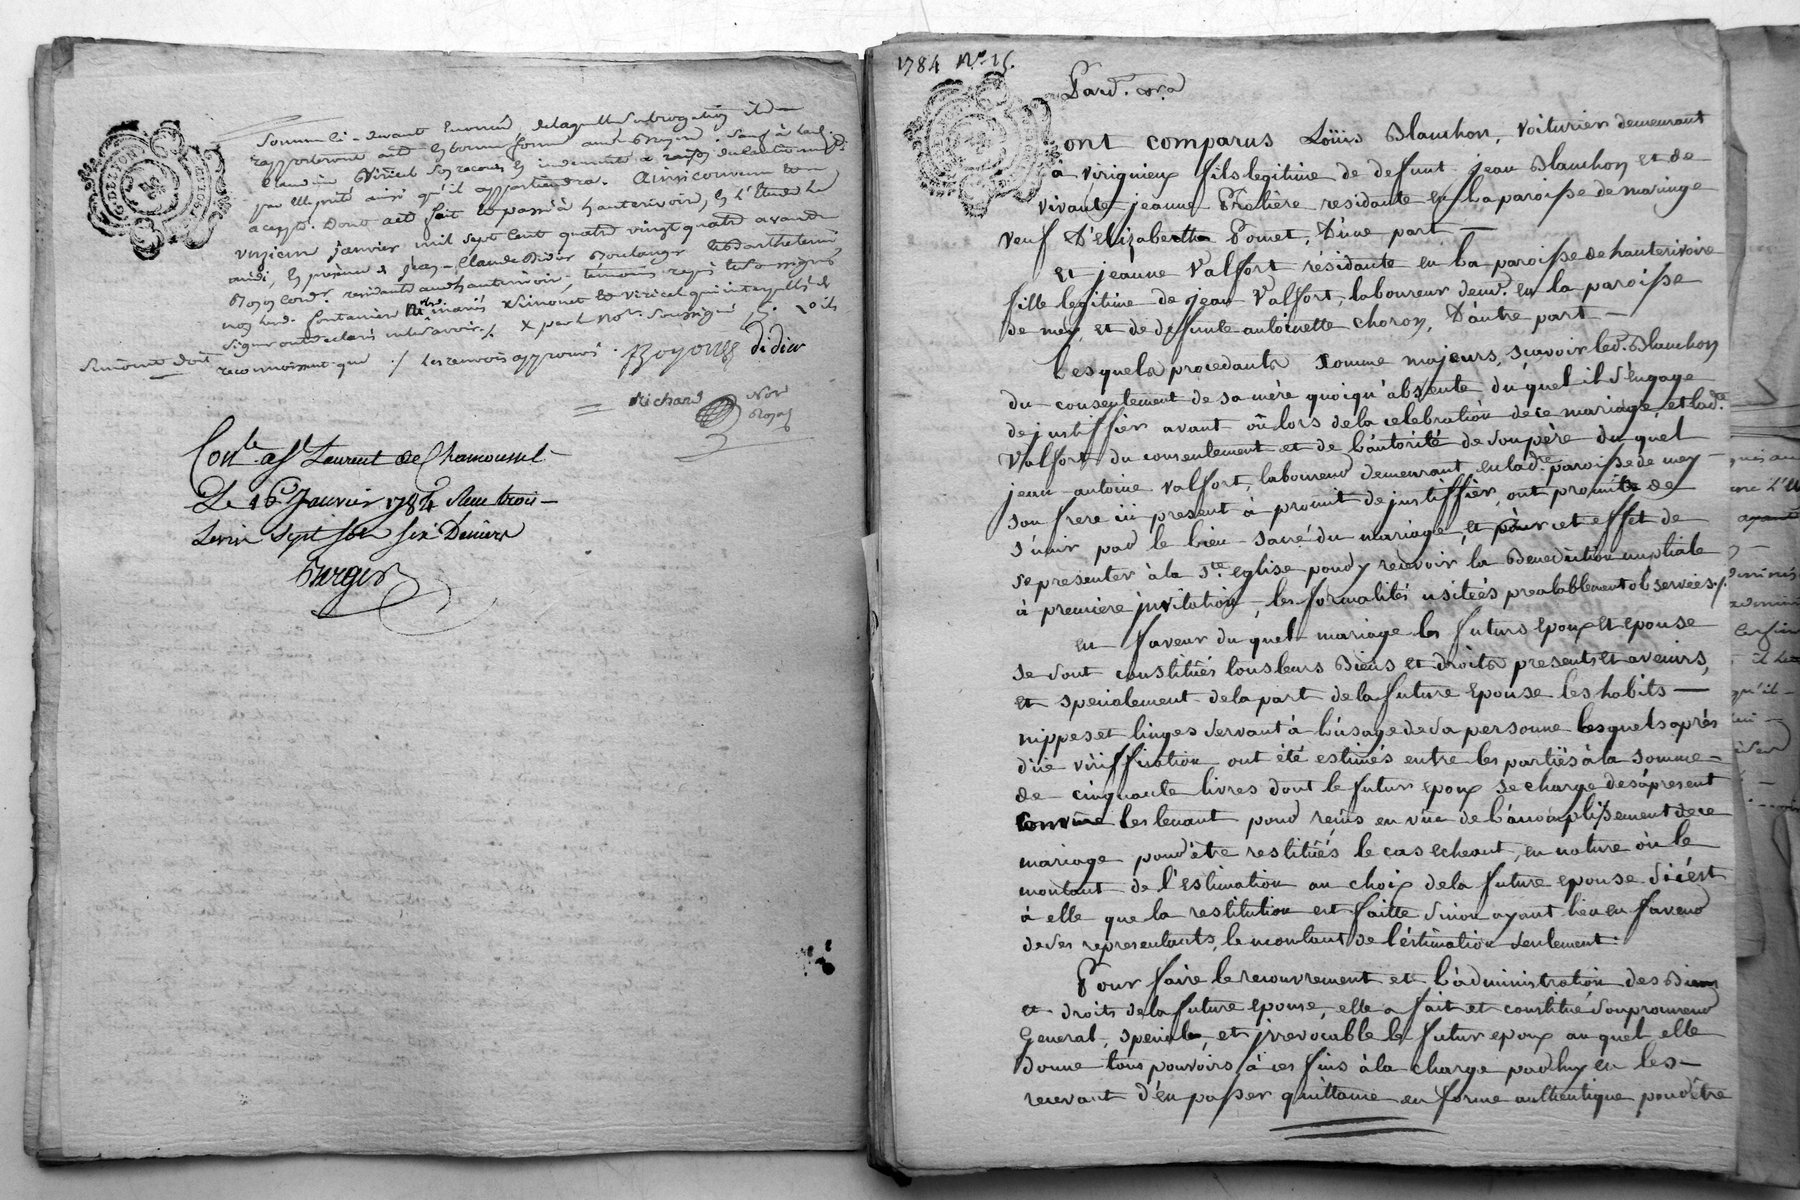 Somme ci-devant énoncée, de laquelle subrogation il
rapporteront acte en bonne forme aud. Broyer. Sauf à lad.
Claudine Viricel son recours en indemnité à raison du cautionnemt.
par elle prêté ainsi qu'il appartiendra. Ainsi convenu et
accepté. Dont acte fait et passé à hauterivoire, en l'Etude le
onzieme janvier mil sept cent quatre vingt quatre avant
midi, en présence de jean-Claude Didier Boulanger
residants aud. hauterivoire, temoins requis et soussignés
signer ont déclaré ne le savoir ./. X par le notre. soussigné
reconnoissent que ./. les renvois approuvés.
Boyer didier
Richard Nore
Royal
Conlé. a St Laurent de Chamousset
Le 16e Janvier 1784 Reçu trois
Livres Sept sols six Deniers
Purger
G. DE LYON
1784 Nro 15.
Pard. &ra
ont comparus Loüis Blanchon, voiturier demeurant
à virignieux fils legitime de defunt jean Blanchon et de
vivante jeanne Protière residante en la paroisse de maringe
veuf D'elizabeth Pomet, D'une part —
Et jeanne Valfort résidante en la paroisse de hauterivoire
fille legitime de jean Valfort, laboureur demt. en la paroisse
de mey, et de defunte antoinette choron, D'autre part —
Lesquels procedants comme majeurs, scavoir led. Blanchon
du consentement de sa mère quoiqu'absente du quel il s'engage
de justiffier avant où lors de la celebration de ce mariage, et lade.
Valfort du consentement et de l'autorité de son père du quel
jean antoine valfort, laboureur demeurant en lade. paroisse de mey
son frere ici present à promit de justiffier, ont promit de
s'unir par le lien sacré du mariage, et pour cet effet de
se presenter à la Ste. eglise pour y recevoir la Benediction nuptiale
à premiere invitation, les formalités usitées prealablement observées ./.
en faveur du quel mariage les futurs epoux et epouse
se sont constitüés tous leurs Biens et droits presents et avenirs,
et specialement de la part de la future epouse les habits —
nippes et linges servant à l'usage de sa personne lesquels après
düe vériffication ont été estimés entre les partiës à la somme
de cinquante livres dont le futur epoux se charge des à present
comme les tenant pour reçus en vüe de l'accomplissement de ce
mariage pour être restitüés le cas echeant, en nature où le
montant de l'estimation au choix de la future epouse si c'est
à elle que la restitution est faitte sinon ayant lieu en faveur
de ses representants, le montant de l'éstimation seulement.
Pour faire le recouvrement et l'administration des Biens
et droits de la future epouse, elle a fait et constitué son procureur
General, special, et irrevocable le futur epoux au quel elle
donne tous pouvoirs à ces fins à la charge par luy en les —
recevant d'en passer quittance en forme authentique pour être